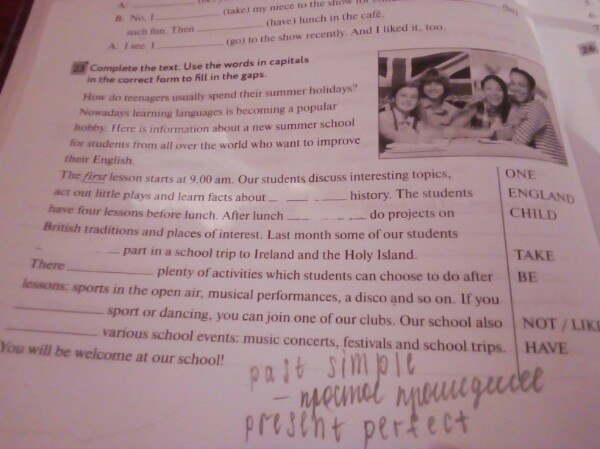 A:
B: No, I ________ (take) my niece to the show for
such fun. Then ________ (have) lunch in the café.
A: I see. I ________ (go) to the show recently. And I liked it, too.
(be)
26
23 Complete the text. Use the words in capitals
in the correct form to fill in the gaps.
How do teenagers usually spend their summer holidays?
Nowadays learning languages is becoming a popular
hobby. Here is information about a new summer school
for students from all over the world who want to improve
their English.
The first lesson starts at 9.00 am. Our students discuss interesting topics, ONE
act out little plays and learn facts about ________ history. The students ENGLAND
have four lessons before lunch. After lunch ________ do projects on CHILD
British traditions and places of interest. Last month some of our students
________ part in a school trip to Ireland and the Holy Island. TAKE
There ________ plenty of activities which students can choose to do after BE
lessons: sports in the open air, musical performances, a disco and so on. If you
________ sport or dancing, you can join one of our clubs. Our school also NOT / LIKE
________ various school events: music concerts, festivals and school trips. HAVE
You will be welcome at our school!
past simple
- простое прошедшее
present perfect